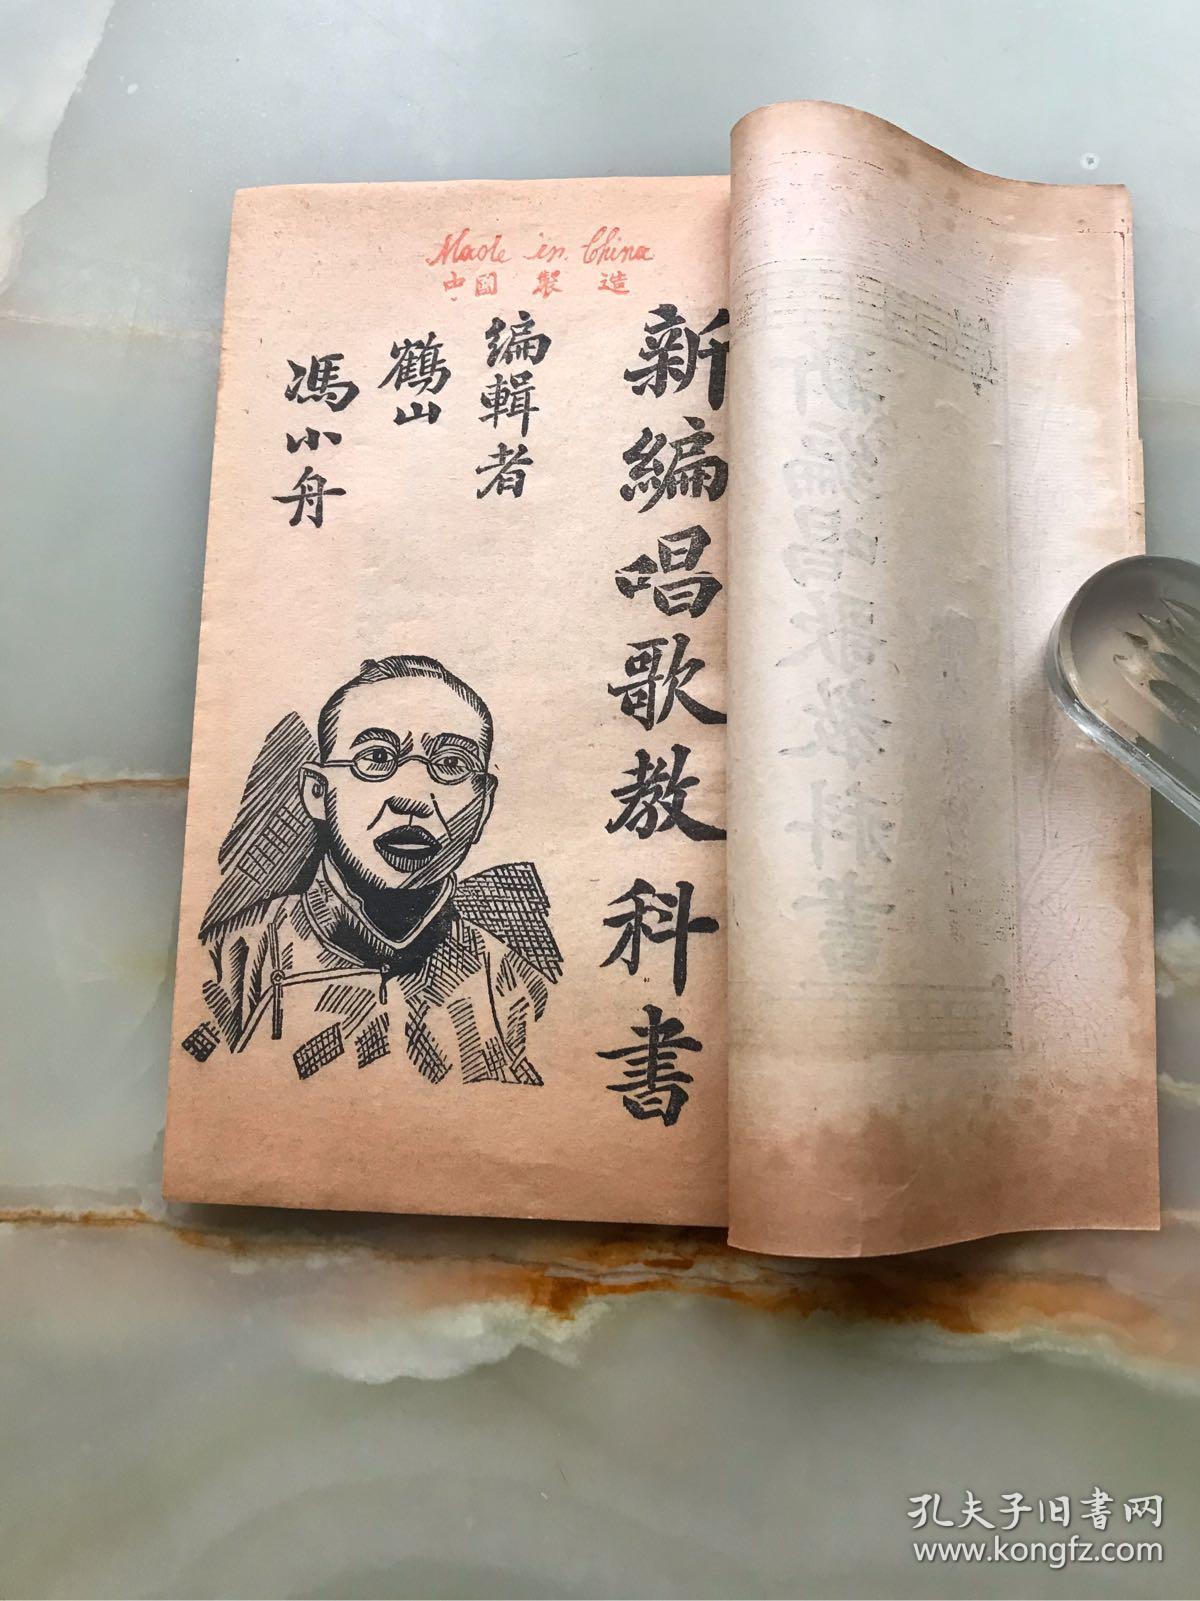 Made in China
中國製造
新編唱歌教科書
編輯者
鶴山
馮小舟
新編唱歌教科書
孔夫子旧书网
www.kongfz.com